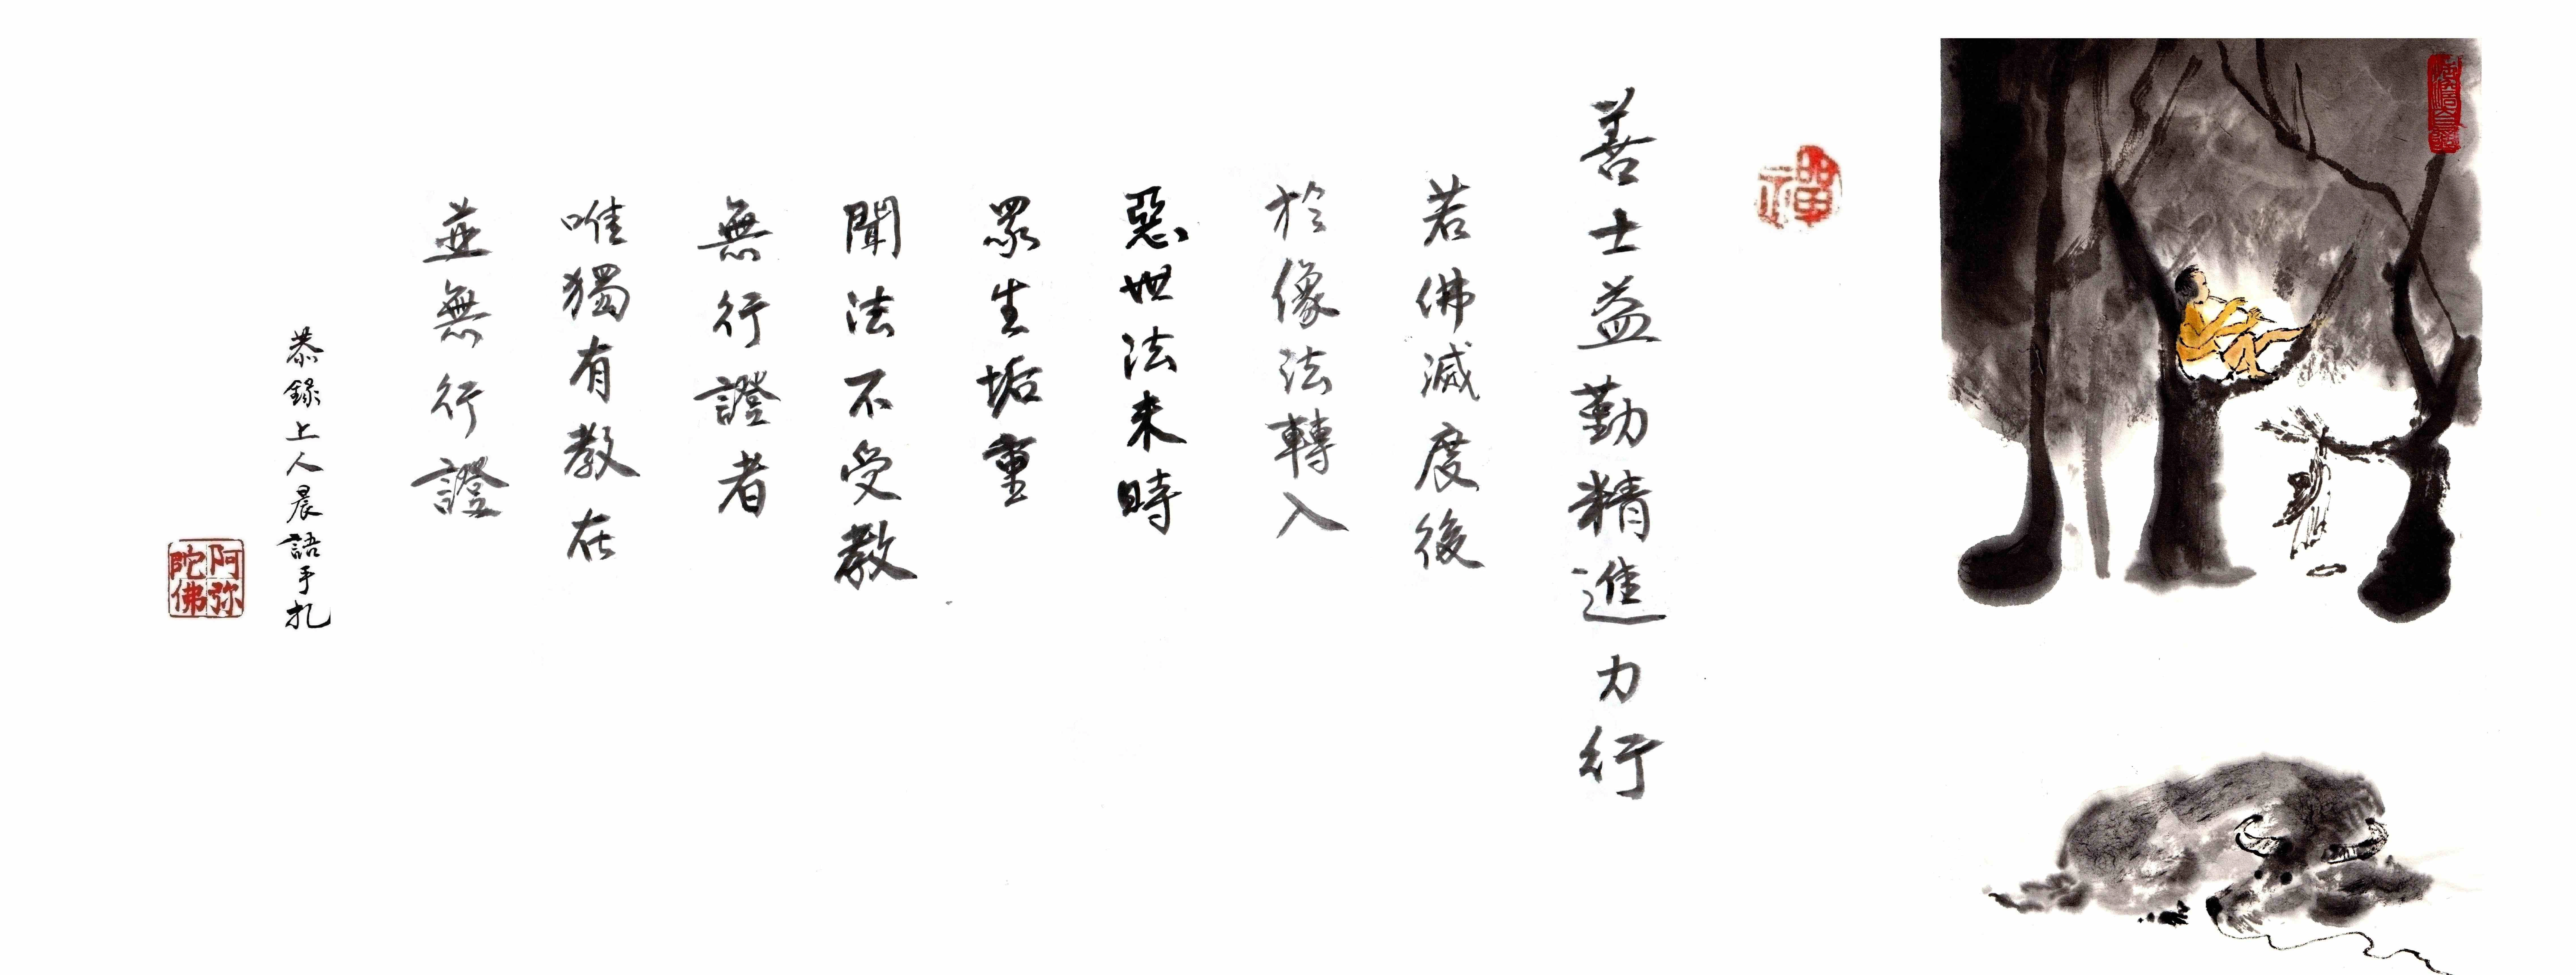 禪
善士益勤精進力行
若佛滅度後
於像法轉入
惡世法末時
眾生垢重
聞法不受教
無行證者
唯獨有教在
並無行證
恭錄上人晨語手札
阿弥陀佛